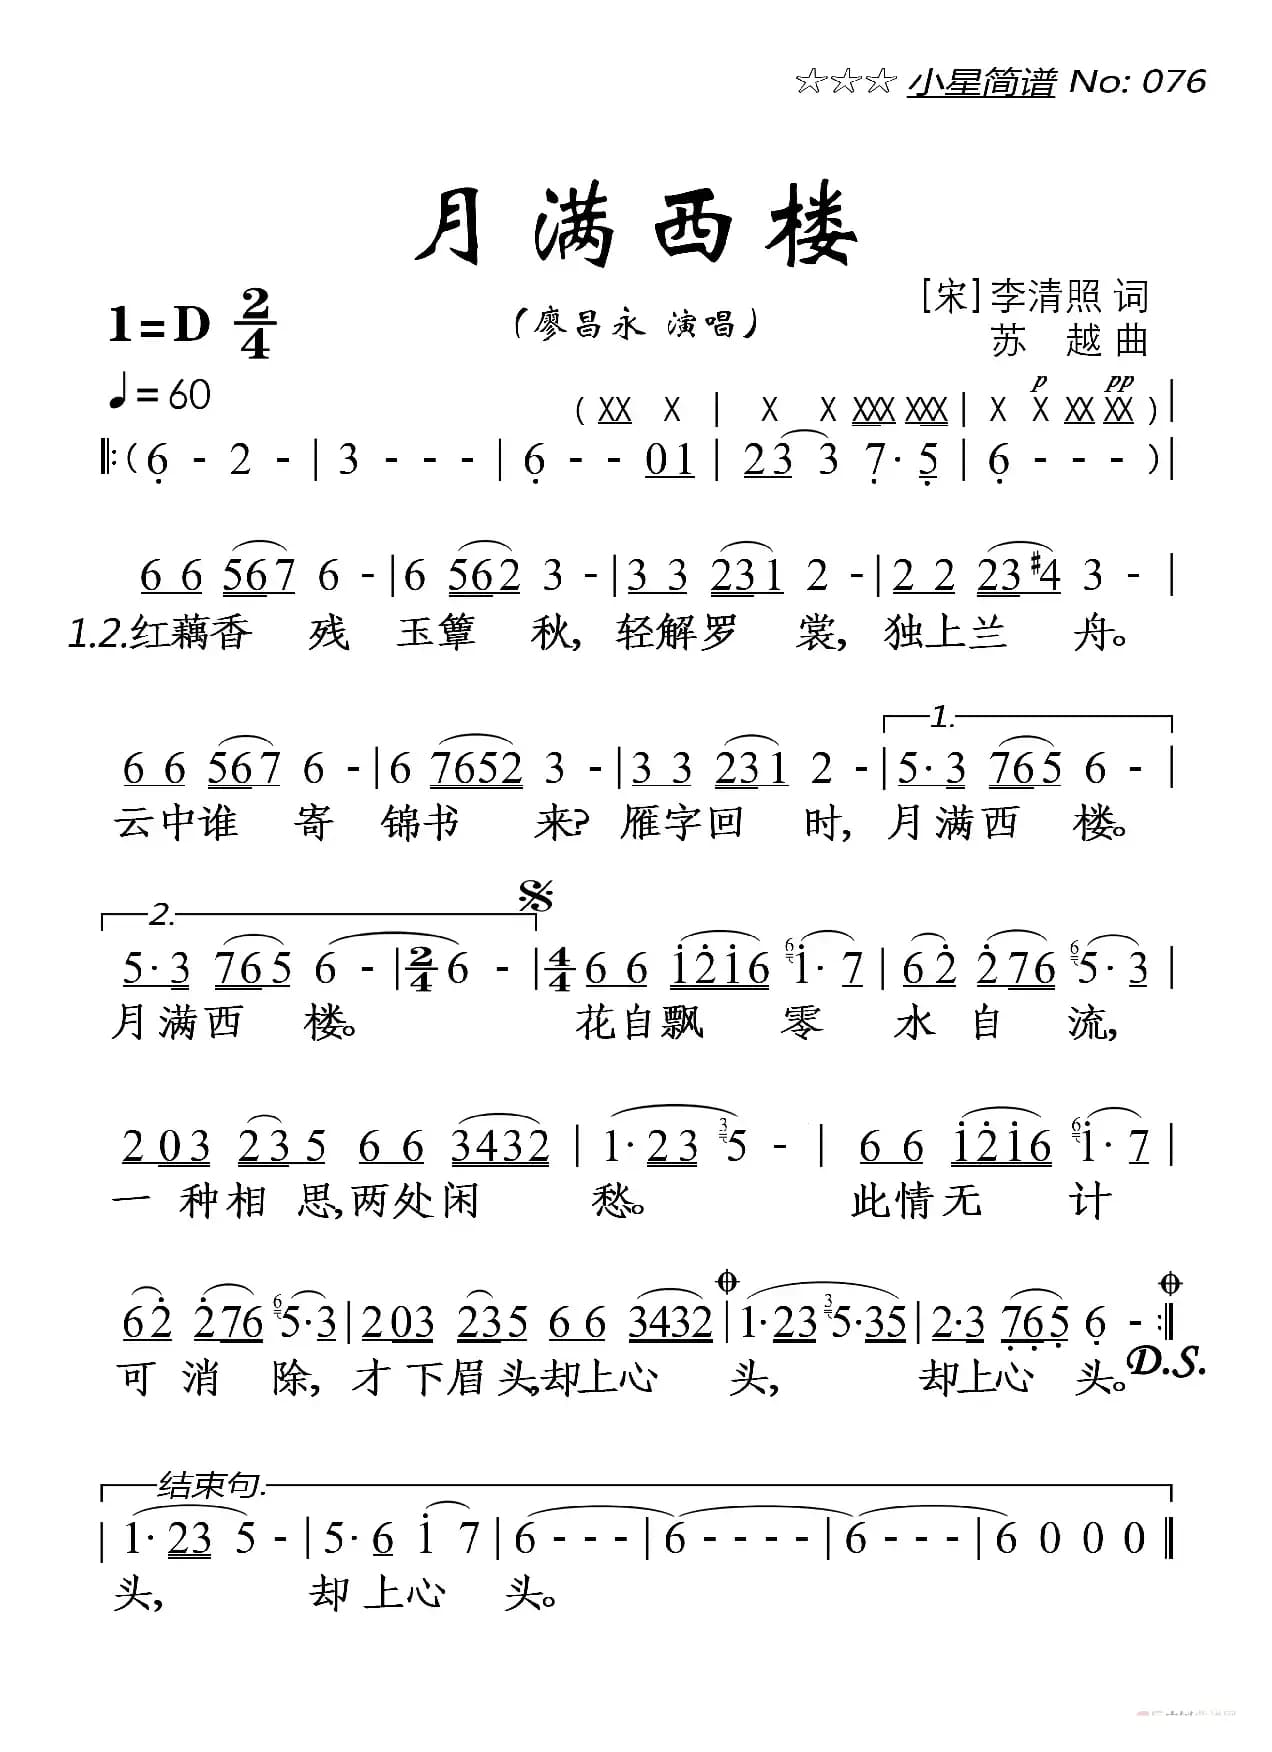 ☆☆☆ 小星简谱 No: 076
月满西楼
[宋] 李清照 词
1=D 2/4 (廖昌永 演唱)
苏 越 曲
♩=60
p pp
( XX X | X X XXX XXX | X X XX XX ) |
‖: ( 6̣ - 2 - | 3 - - - | 6̣ - - 0 1 | 2 3 3 7̣· 5̣ | 6̣ - - - ) |
6 6 567 6 - | 6 562 3 - | 3 3 231 2 - | 2 2 23#4 3 - |
1.2.红藕香 残 玉簟 秋, 轻解罗 裳, 独上兰 舟。
1.
6 6 567 6 - | 6 7652 3 - | 3 3 231 2 - | 5· 3 765 6 - |
云中谁 寄 锦书 来? 雁字回 时, 月满西 楼。
2. 𝄋
5· 3 765 6 - | 2/4 6 - | 4/4 6 6 1̇2̇1̇6 6 1̇· 7 | 6 2̇ 2̇76 6 5· 3 |
月满西 楼。 花自飘 零 水 自 流,
2 03 235 6 6 3432 | 1· 23 3 5 - | 6 6 1̇2̇1̇6 6 1̇· 7 |
一 种相 思,两处闲 愁。 此情无 计
62̇ 2̇76 6 5·3 | 2 03 235 6 6 3432 𝄌 | 1·23 3 5·35 | 2·3 7̣6̣5̣ 6̣ - :‖ 𝄌
可 消 除, 才下眉头,却上心 头, 却上心 头。 D.S.
结束句.
| 1· 23 5 - | 5· 6 1̇ 7 | 6 - - - | 6 - - - - | 6 - - - | 6 0 0 0 ‖
头, 却上心 头。